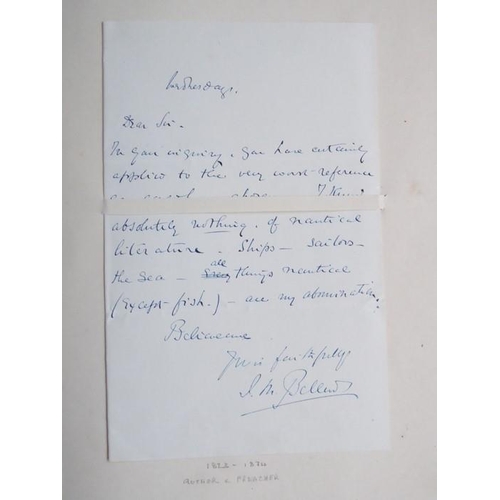 Wednesday.
Dear Sir -
In your enquiry, you have certainly
applied to the very worst reference
I know
absolutely nothing, of nautical
literature. Ships - sailors -
the sea - all things nautical
(Except fish.) - are my abomination.
Believe me
Yours faithfully
J. M. Bellew
1823 - 1874
AUTHOR & PREACHER